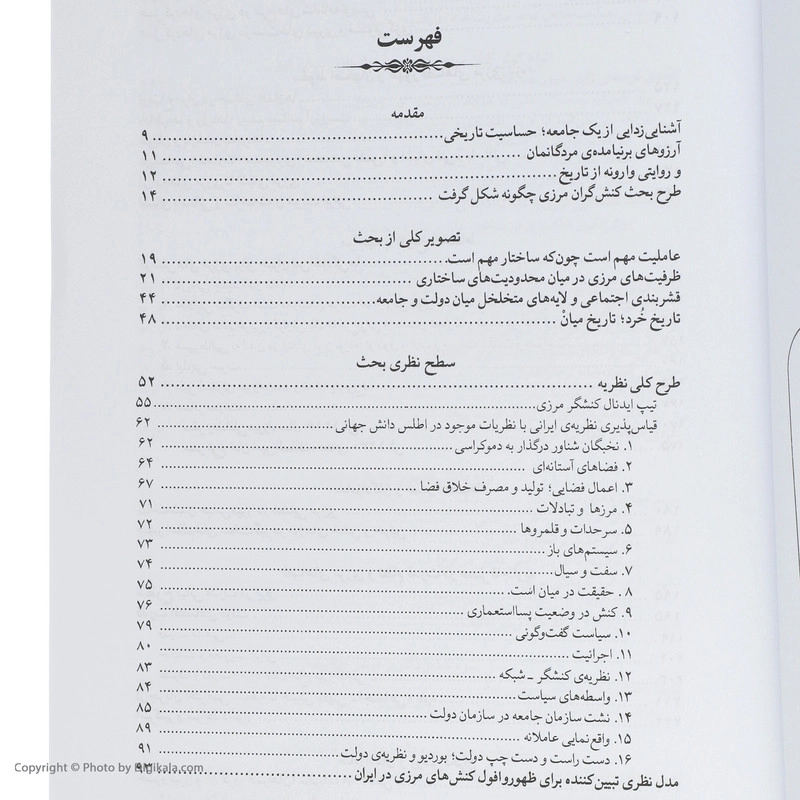 فهرست
مقدمه
آشنایی‌زدایی از یک جامعه؛ حساسیت تاریخی ۹
آرزوهای برنیامده‌ی مردگانمان ۱۱
و روایتی وارونه از تاریخ ۱۲
طرح بحث کنش‌گران مرزی چگونه شکل گرفت ۱۴
تصویر کلی از بحث
عاملیت مهم است چون‌که ساختار مهم است. ۱۹
ظرفیت‌های مرزی در میان محدودیت‌های ساختاری ۲۱
قشربندی اجتماعی و لایه‌های متخلخل میان دولت و جامعه ۴۴
تاریخ خُرد؛ تاریخ میانْ ۴۸
سطح نظری بحث
طرح کلی نظریه ۵۲
تیپ ایدئال کنشگر مرزی ۵۵
قیاس‌پذیری نظریه‌ی ایرانی با نظریات موجود در اطلس دانش جهانی ۶۲
۱. نخبگان شناور درگذار به دموکراسی ۶۲
۲. فضاهای آستانه‌ای ۶۴
۳. اعمال فضایی؛ تولید و مصرف خلاق فضا ۶۷
۴. مرزها و تبادلات ۷۱
۵. سرحدات و قلمروها ۷۲
۶. سیستم‌های باز ۷۳
۷. سفت و سیال ۷۴
۸. حقیقت در میان است. ۷۵
۹. کنش در وضعیت پسااستعماری ۷۶
۱۰. سیاست گفت‌وگویی ۷۹
۱۱. اجرائیت ۸۰
۱۲. نظریه‌ی کنشگر ـ شبکه ۸۳
۱۳. واسطه‌های سیاست ۸۴
۱۴. نشت سازمان جامعه در سازمان دولت ۸۵
۱۵. واقع‌نمایی عاملانه ۸۹
۱۶. دست راست و دست چپ دولت؛ بوردیو و نظریه‌ی دولت ۹۱
مدل نظری تبیین‌کننده برای ظهور و افول کنش‌های مرزی در ایران ۹۳
Copyright © Photo by Digikala.com